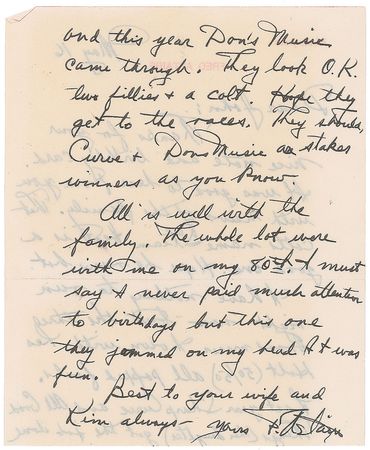 and this year Don's Music
came through. They look O.K.
two fillies & a colt. Hope they
get to the races. They should,
Curve & Dons Music as stakes
winners as you know
All is well with the
family. The whole lot were
with me on my 80th. I must
say I never paid much attention
to birthdays but this one
they jammed on my head & it was
fun.
Best to your wife and
Kim always - yours